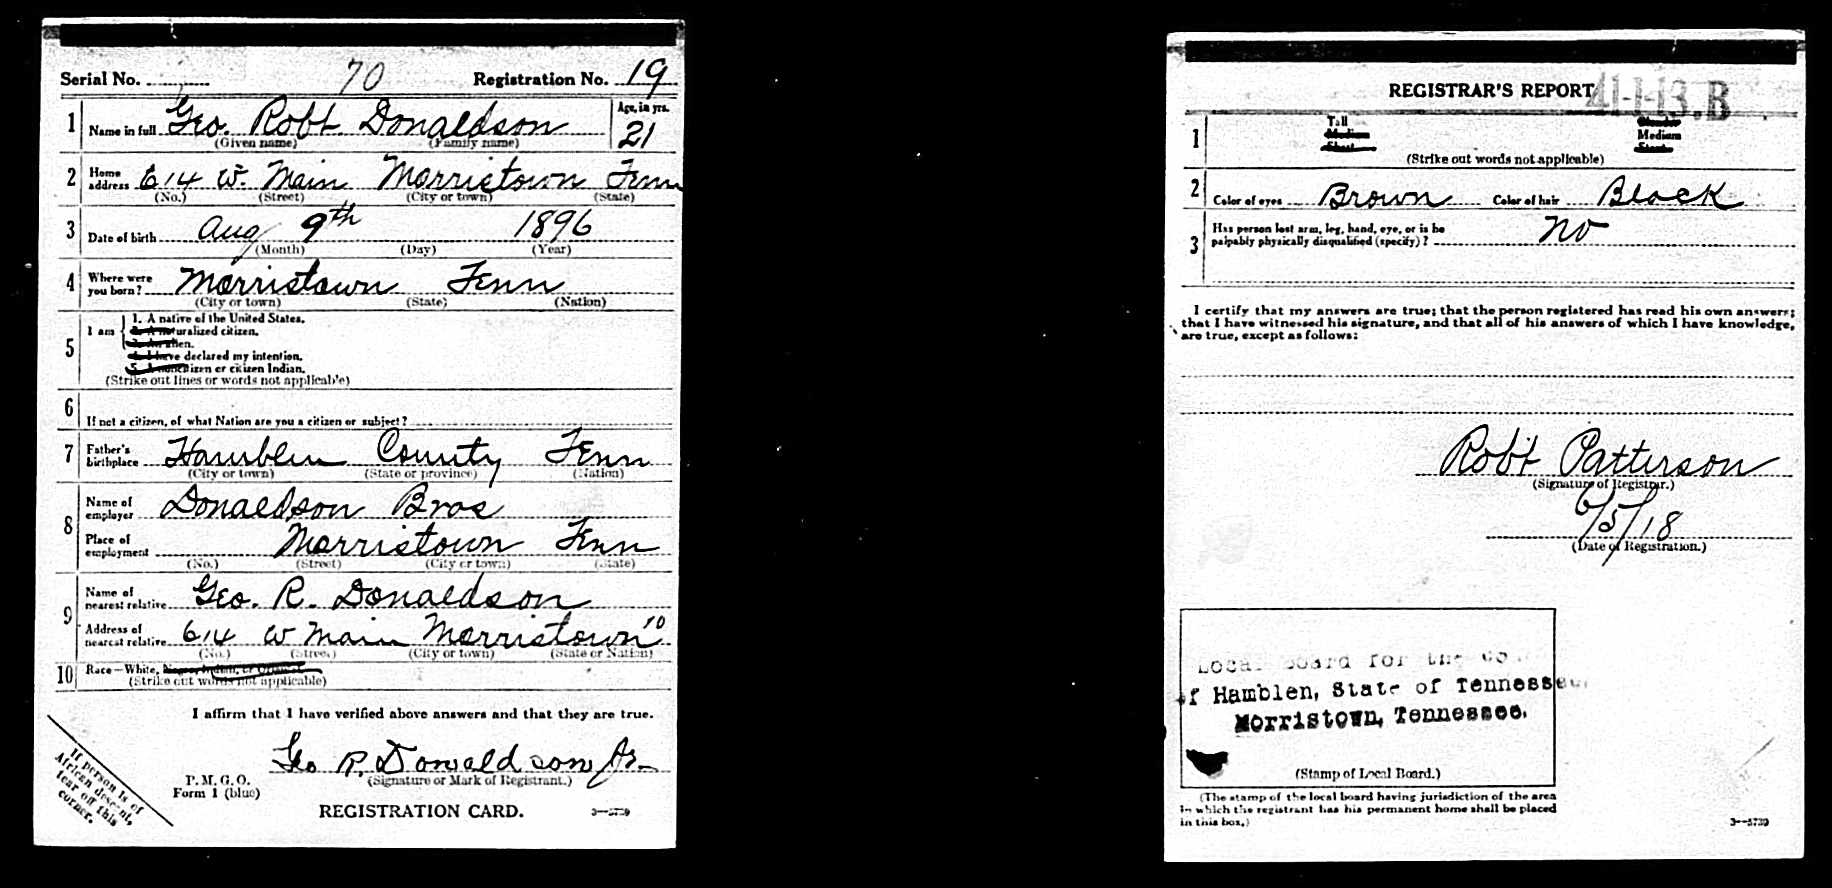 Serial No. 70 Registration No. 19
1 Name in full Geo. Robt Donaldson Age, in yrs. 21
(Given name) (Family name)
2 Home address 614 W. Main Morristown Tenn
(No.) (Street) (City or town) (State)
3 Date of birth Aug 9th 1896
(Month) (Day) (Year)
4 Where were you born? Morristown Tenn
(City or town) (State) (Nation)
5 I am 1. A native of the United States.
2. A naturalized citizen.
3. An alien.
4. I have declared my intention.
5. A noncitizen or citizen Indian.
(Strike out lines or words not applicable)
6 If not a citizen, of what Nation are you a citizen or subject?
7 Father's birthplace Hamblen County Tenn
(City or town) (State or province) (Nation)
8 Name of employer Donaldson Bros
Place of employment Morristown Tenn
(No.) (Street) (City or town) (State)
9 Name of nearest relative Geo. R. Donaldson
Address of nearest relative 614 W Main Morristown 10
(No.) (Street) (City or town) (State or Nation)
10 Race—White, Negro, Indian, or Oriental
(Strike out words not applicable)
I affirm that I have verified above answers and that they are true.
Geo R. Donaldson Jr
(Signature or Mark of Registrant.)
P. M. G. O.
Form 1 (blue)
REGISTRATION CARD. 3—5739
If person is of
African descent,
tear off this
corner.
REGISTRAR'S REPORT 41-1-13.B
1 Tall Slender
Medium Medium
Short Stout
(Strike out words not applicable)
2 Color of eyes Brown Color of hair Black
3 Has person lost arm, leg, hand, eye, or is he
palpably physically disqualified (specify)? No
I certify that my answers are true; that the person registered has read his own answers;
that I have witnessed his signature, and that all of his answers of which I have knowledge,
are true, except as follows:
Robt Patterson
(Signature of Registrar.)
6/5/18
(Date of Registration.)
Local Board for the Co
of Hamblen, State of Tennessee,
Morristown, Tennessee.
(Stamp of Local Board.)
(The stamp of the local board having jurisdiction of the area
in which the registrant has his permanent home shall be placed
in this box.)
3—5739